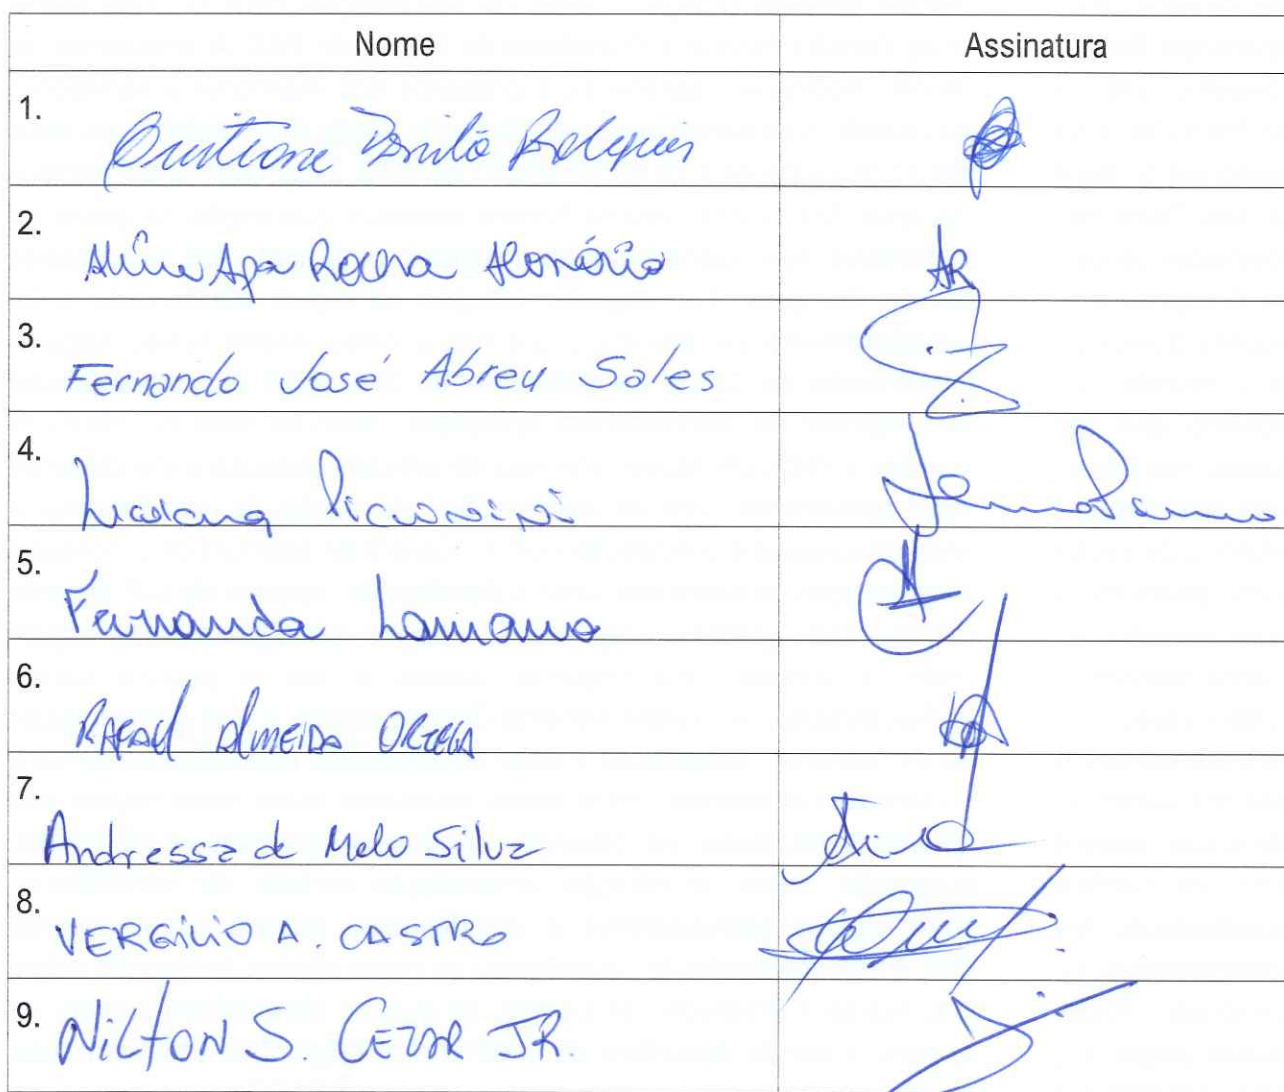 Nome Assinatura
1. Cristiane Rodrigues
2. Aline Apa Rocha Honório AR
3. Fernando José Abreu Sales
4. Luciana Piccinini
5. Fernanda Lamano
6. RAFAEL ALMEIDA ORTEGA
7. Andressa de Melo Silva
8. VERGiLiO A. CASTRO
9. NiLTON S. CEZAR JR.